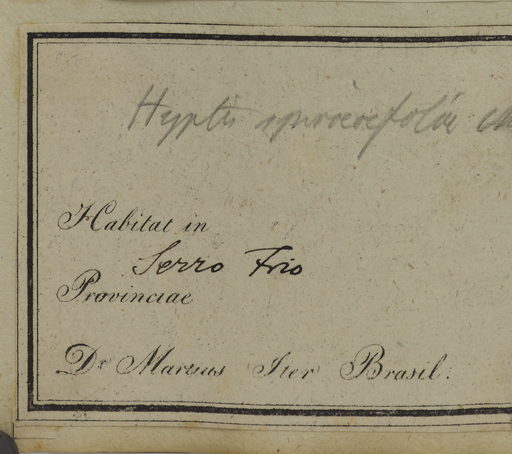 Hyptis
Habitat in
Serro Frio
Provinciae
Dr Martius Iter Brasil.